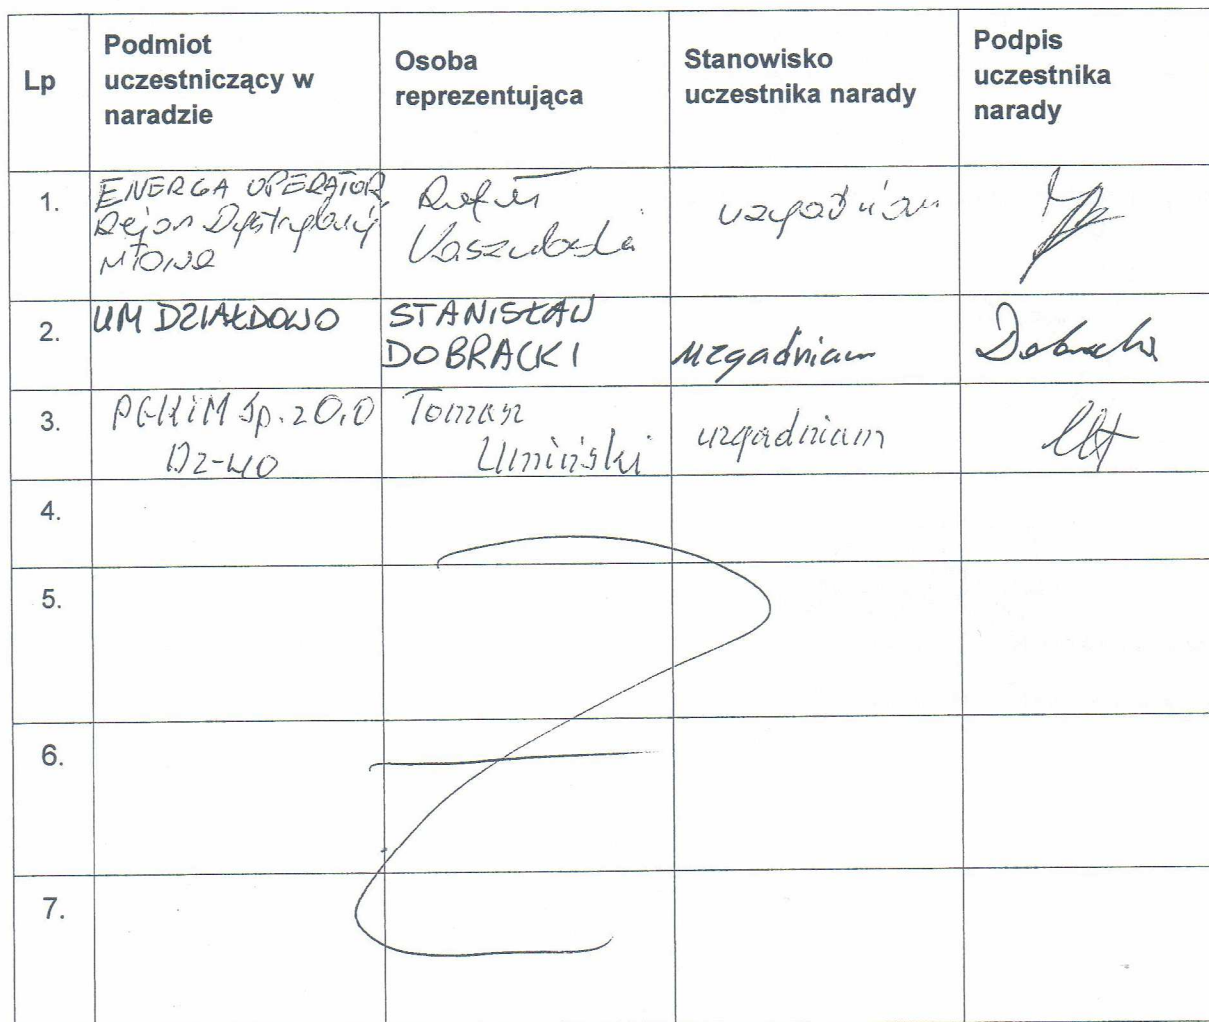 Lp
Podmiot
uczestniczący w
naradzie
Osoba
reprezentująca
Stanowisko
uczestnika narady
Podpis
uczestnika
narady
1.
ENERGA OPERATOR,
Rejon Dystrybucji
Mława
Rafał
uzgadniam
2.
UM DZIAŁDOWO
STANISŁAW
DOBRACKI
uzgadniam
Dobracki
3.
PGKiM Sp. z O.O
Dz-wo
Tomasz
Umiński
uzgadniam
4.
5.
6.
7.